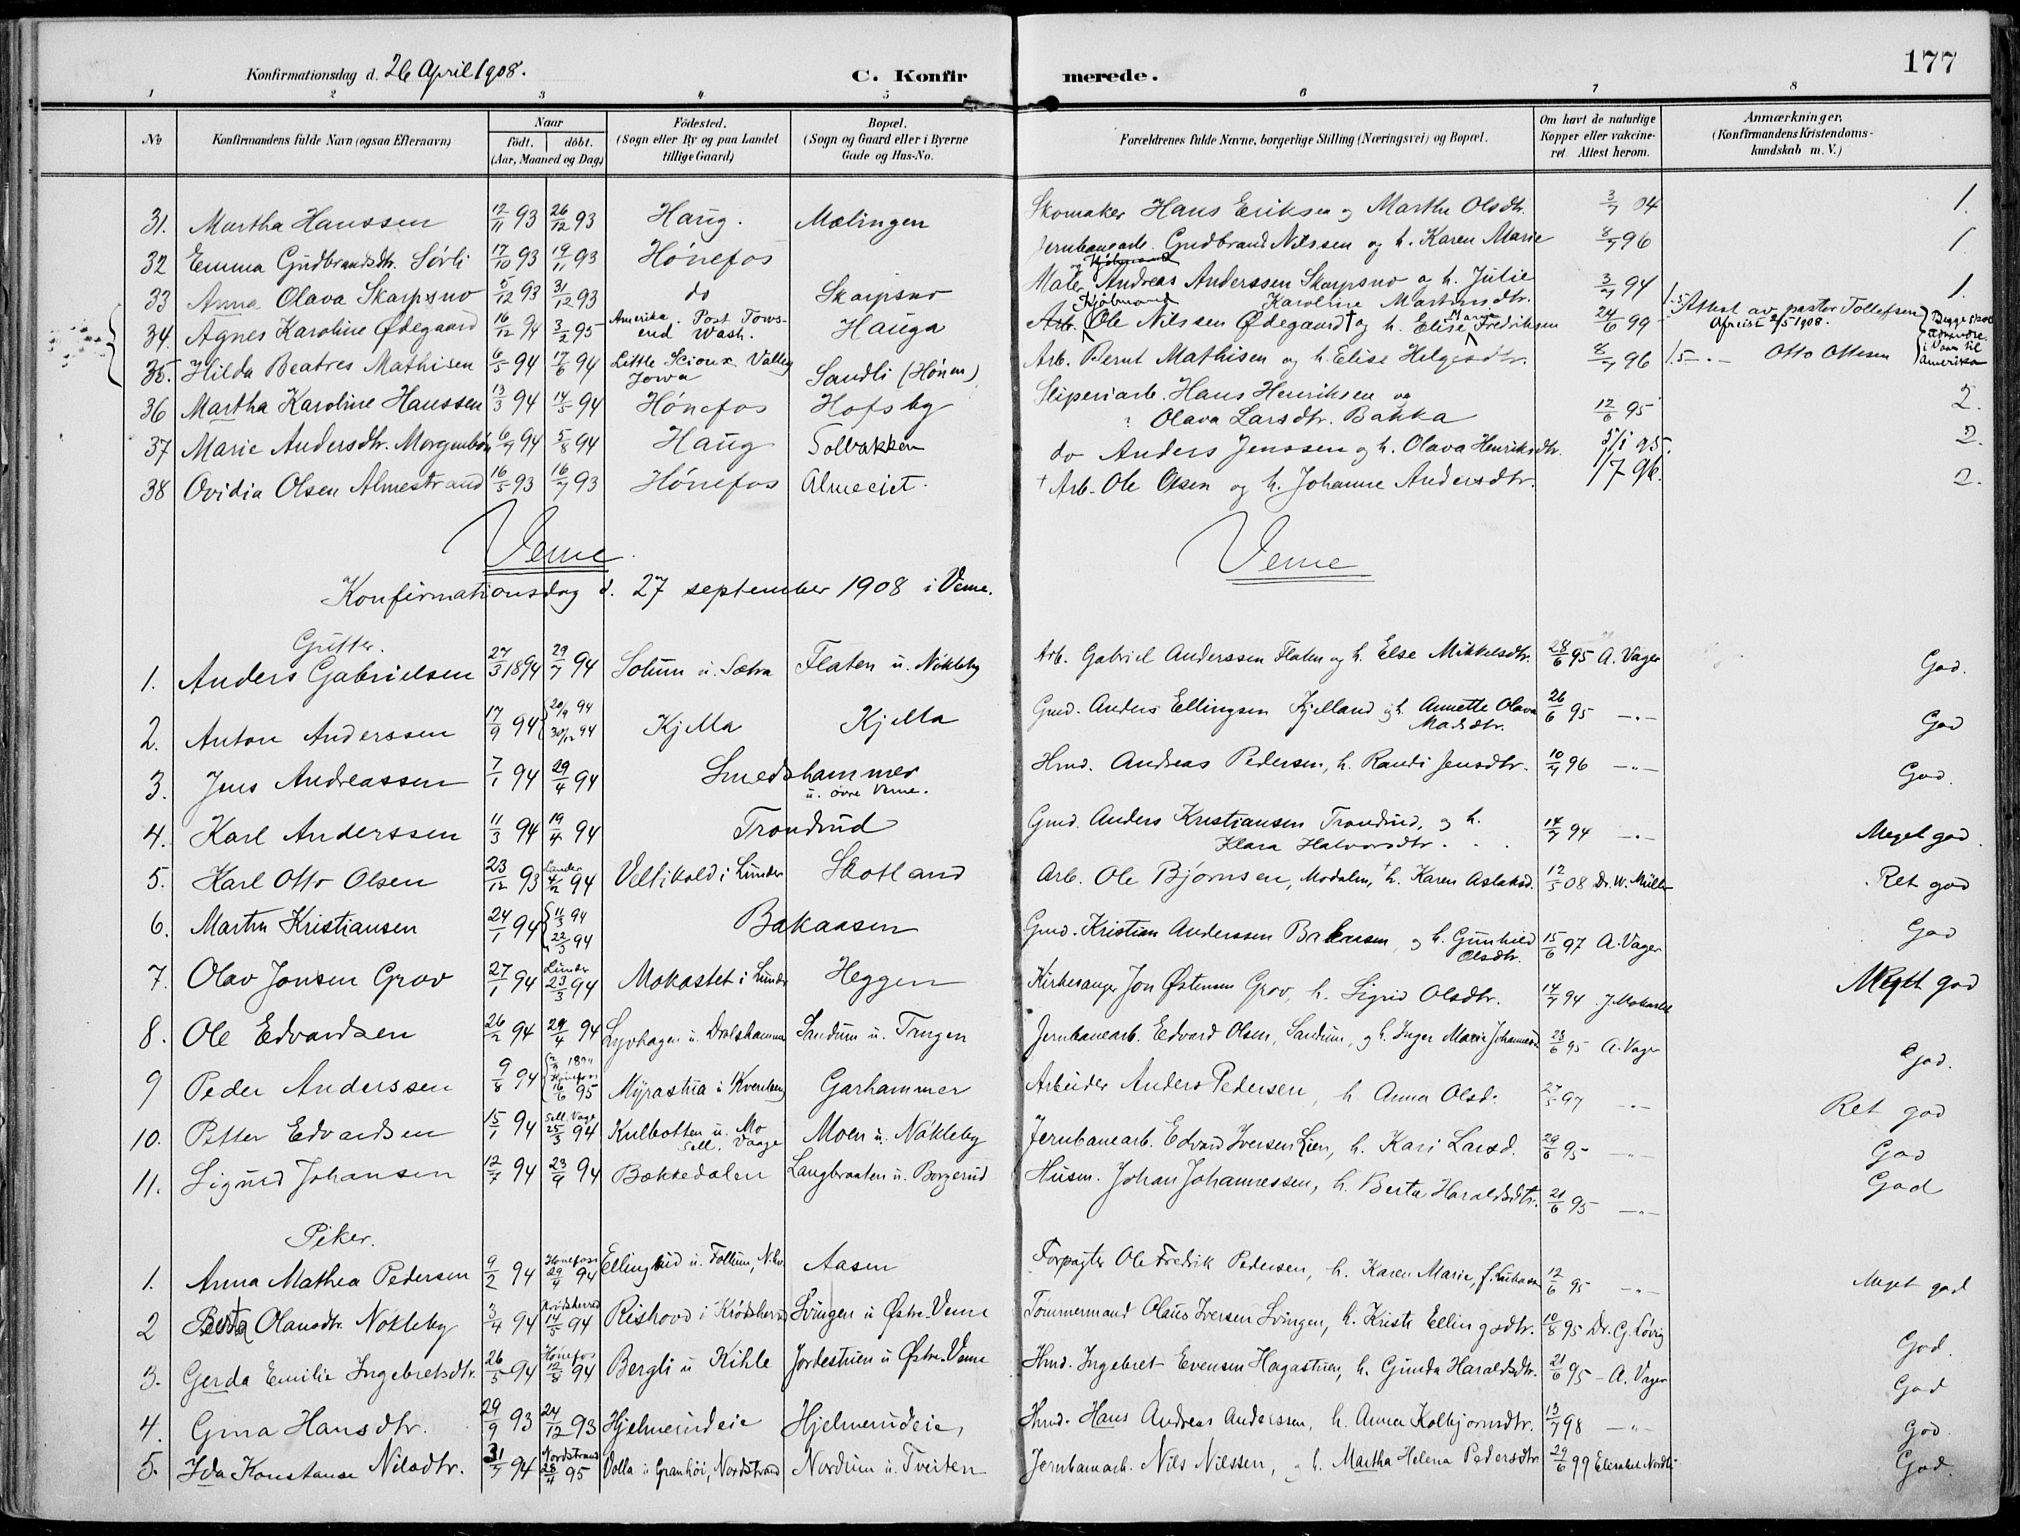 Konfirmationsdag d. 26 April 1908.
C. Konfirmerede.
177
1 2 3 4 5 6 7 8
No
Konfirmandens fulde Navn (ogsaa Efternavn)
Naar
födt. döbt.
(Aar, Maaned og Dag)
Födested.
(Sogn eller By og paa Landet
tillige Gaard)
Bopæl.
(Sogn og Gaard eller i Byerne
Gade og Hus-No.
Forældrenes fulde Navne, borgerlige Stilling (Næringsvei) og Bopæl.
Om havt de naturlige
Kopper eller vakcine-
ret. Attest herom.
Anmærkninger,
(Konfirmandens Kristendoms-
kundskab m. V.)
31. Martha Hanssen 12/11 93 26/12 93 Haug. Mælingen Skomaker Hans Eriksen og Marthe Olsdtr. 3/7 04 1.
32 Emma Gudbrandsdtr. Sørli 17/10 93 19/11 93 Hønefos Jernbanearb. Gudbrand Nilssen og h. Karen Marie 8/7 96 1
33 Anna Olava Skarpsno 5/12 93 31/12 93 do Skarpsno Maler Andreas Anderssen Skarpsno og h. Julie Karoline Martinsdtr. 3/7 94 1.
34. Agnes Karoline Ødegaard 16/12 94 3/2 95 Amerika. Post Tows-
end Wash. Hauga Arb. Ole Nilssen Ødegaard † og h. Elise Marie Fredriksen 24/6 99 1.5 Attest av pastor Tollefsen
Afreist 2/5 1908.
35. Hilda Beatres Mathisen 6/5 94 17/6 94 Little Scioux Valley
Iowa Sandli (Hønen) Arb. Bernt Mathisen og h. Elise Helgesdtr. 8/7 96 1.5 -"- Otto Ottesen
i Vaar til
Amerika
36 Martha Karoline Hanssen 13/3 94 14/5 94 Hønefos Hofsby Sliperiarb. Hans Henriksen og
Olava Larsdtr. Bakka 12/6 95 2.
37 Marie Andersdtr. 6/7 94 5/8 94 Haug Solbakken do Anders Jenssen og h. Olava Henriksdtr. 5/1 95. 2.
38 Ovidia Olsen Almestrand 16/5 93 16/7 93 Hønefos Almeeiet. † Arb. Ole Olsen og h. Johanne Andersdtr. 1/7 96. 2.
Veme Veme
Konfirmationsdag d. 27 september 1908 i Veme.
Gutter.
1. Anders Gabrielsen 27/3 1894 29/7 94 Solum u. Sætra Flaten u. Nøkleby Arb. Gabriel Anderssen Flaten og h. Else Mikkelsdtr. 28/6 95 A. Vager God.
2. Anton Anderssen 17/9 94 20/9 94
30/12 94 Kjella Kjella Gmd. Anders Ellingsen Kjelland og h. Annette Olava
Madsdtr. 26/6 95 -"- God
3. Jens Andreassen 7/1 94 29/4 94 Smedshammer
u. øvre Veme. Hmd. Andreas Pedersen, h. Randi Jensdtr. 10/7 96 -"- God.
4. Karl Anderssen 11/3 94 19/4 94 Trondrud Gmd. Anders Kristiansen Trondrud, og h.
Klara Halvorsdtr. 14/7 94 -"- Meget god.
5. Karl Otto Olsen 23/12 93 Lunder
4/2 94 Veltikold i Lunder Skotland Arb. Ole Bjørnsen, Modalen, † h. Karen Aslaksd. 12/5 08 Dr. W. Müller Ret god
6. Martin Kristiansen 24/1 94 11/3 94
22/3 94 Bakaasen Gmd. Kristian Anderssen Bakaasen, og h. Gunhild
Olsdtr. 15/6 97 A. Vager God
7. Olav Jonsen Grov 27/1 94 Lunder
23/3 94 Mokastet i Lunder Heggen Kirkesanger Jon Østensen Grov, h. Sigrid Olsdtr. 14/7 94 Meget god
8. Ole Edvardsen 26/2 94 29/4 94 Lyvhagen u. Dralshammer Sandum u. Trøgen Jernbanearb. Edvard Olsen, Sandum, og h. Inger Marie 23/6 95 A. Vager God.
9 Peder Anderssen 9/8 94 Hønefos
16/6 95 Myrastua i Garhammer Arbeider Anders Pedersen, h. Anna Olsd. 27/5 97 -"- Ret god
10. Petter Edvardsen 15/1 94 25/3 94 Kulbotten u. Mo
Sell. Vaage Moen u. Nøkleby Jernbanearb. Edvard Iversen Lien, h. Kari Larsd. 29/6 95 -"- God
11. Sigurd Johansen 12/7 94 23/9 94 Bækkedalen Langbraaten u. Borgerud Husm. Johan Johannessen, h. Berta Haraldsdtr. 21/6 95 -"- God
Piker.
1. Anna Mathea Pedersen 9/2 94 Hønefoss
29/4 94 Ellingrud u. Follum, Aasen Forpagter Ole Fredrik Pedersen, h. Karen Marie, 12/6 95 -"- Meget god
2 Berta Olausdtr. Nøkleby 3/4 94 Krødsherred
14/5 94 Rishovd i Krødsherred Svingen u Østre Veme Tømmermand Olaus Iversen Svingen, h. Kristi Ellingsdtr. 10/8 95 Dr. G. Løvig God.
3. Gerda Emilie Ingebretsdtr. 26/5 94 Hønefos
12/8 94 Bergli u Kihle Jordestuen u Østre Veme Hmd. Ingebret Evensen Hagastuen, h. Gunda Haraldsdtr. 21/6 95 - A. Vager God
4. Gina Hansdtr. 29/9 93 24/12 93 Hjelmerudeie Hjelmerudeie, Hmd. Hans Andreas Anderssen, h. Anna Kolbjørnsdtr. 13/7 98 -"- God.
5. Ida Konstanse Nilsdtr. 31/7 94 Nordstrand
28/4 95 Volla u Granhøi, Nordstrand Nordum u. Tveiten Jernbanearb. Nils Nilssen, og h. Martha Helena Pedersdtr. 29/6 99 Elisabet Nordli God.